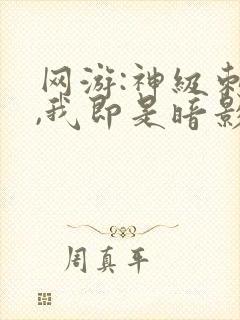 网游:神级
,我即是暗影
周真平